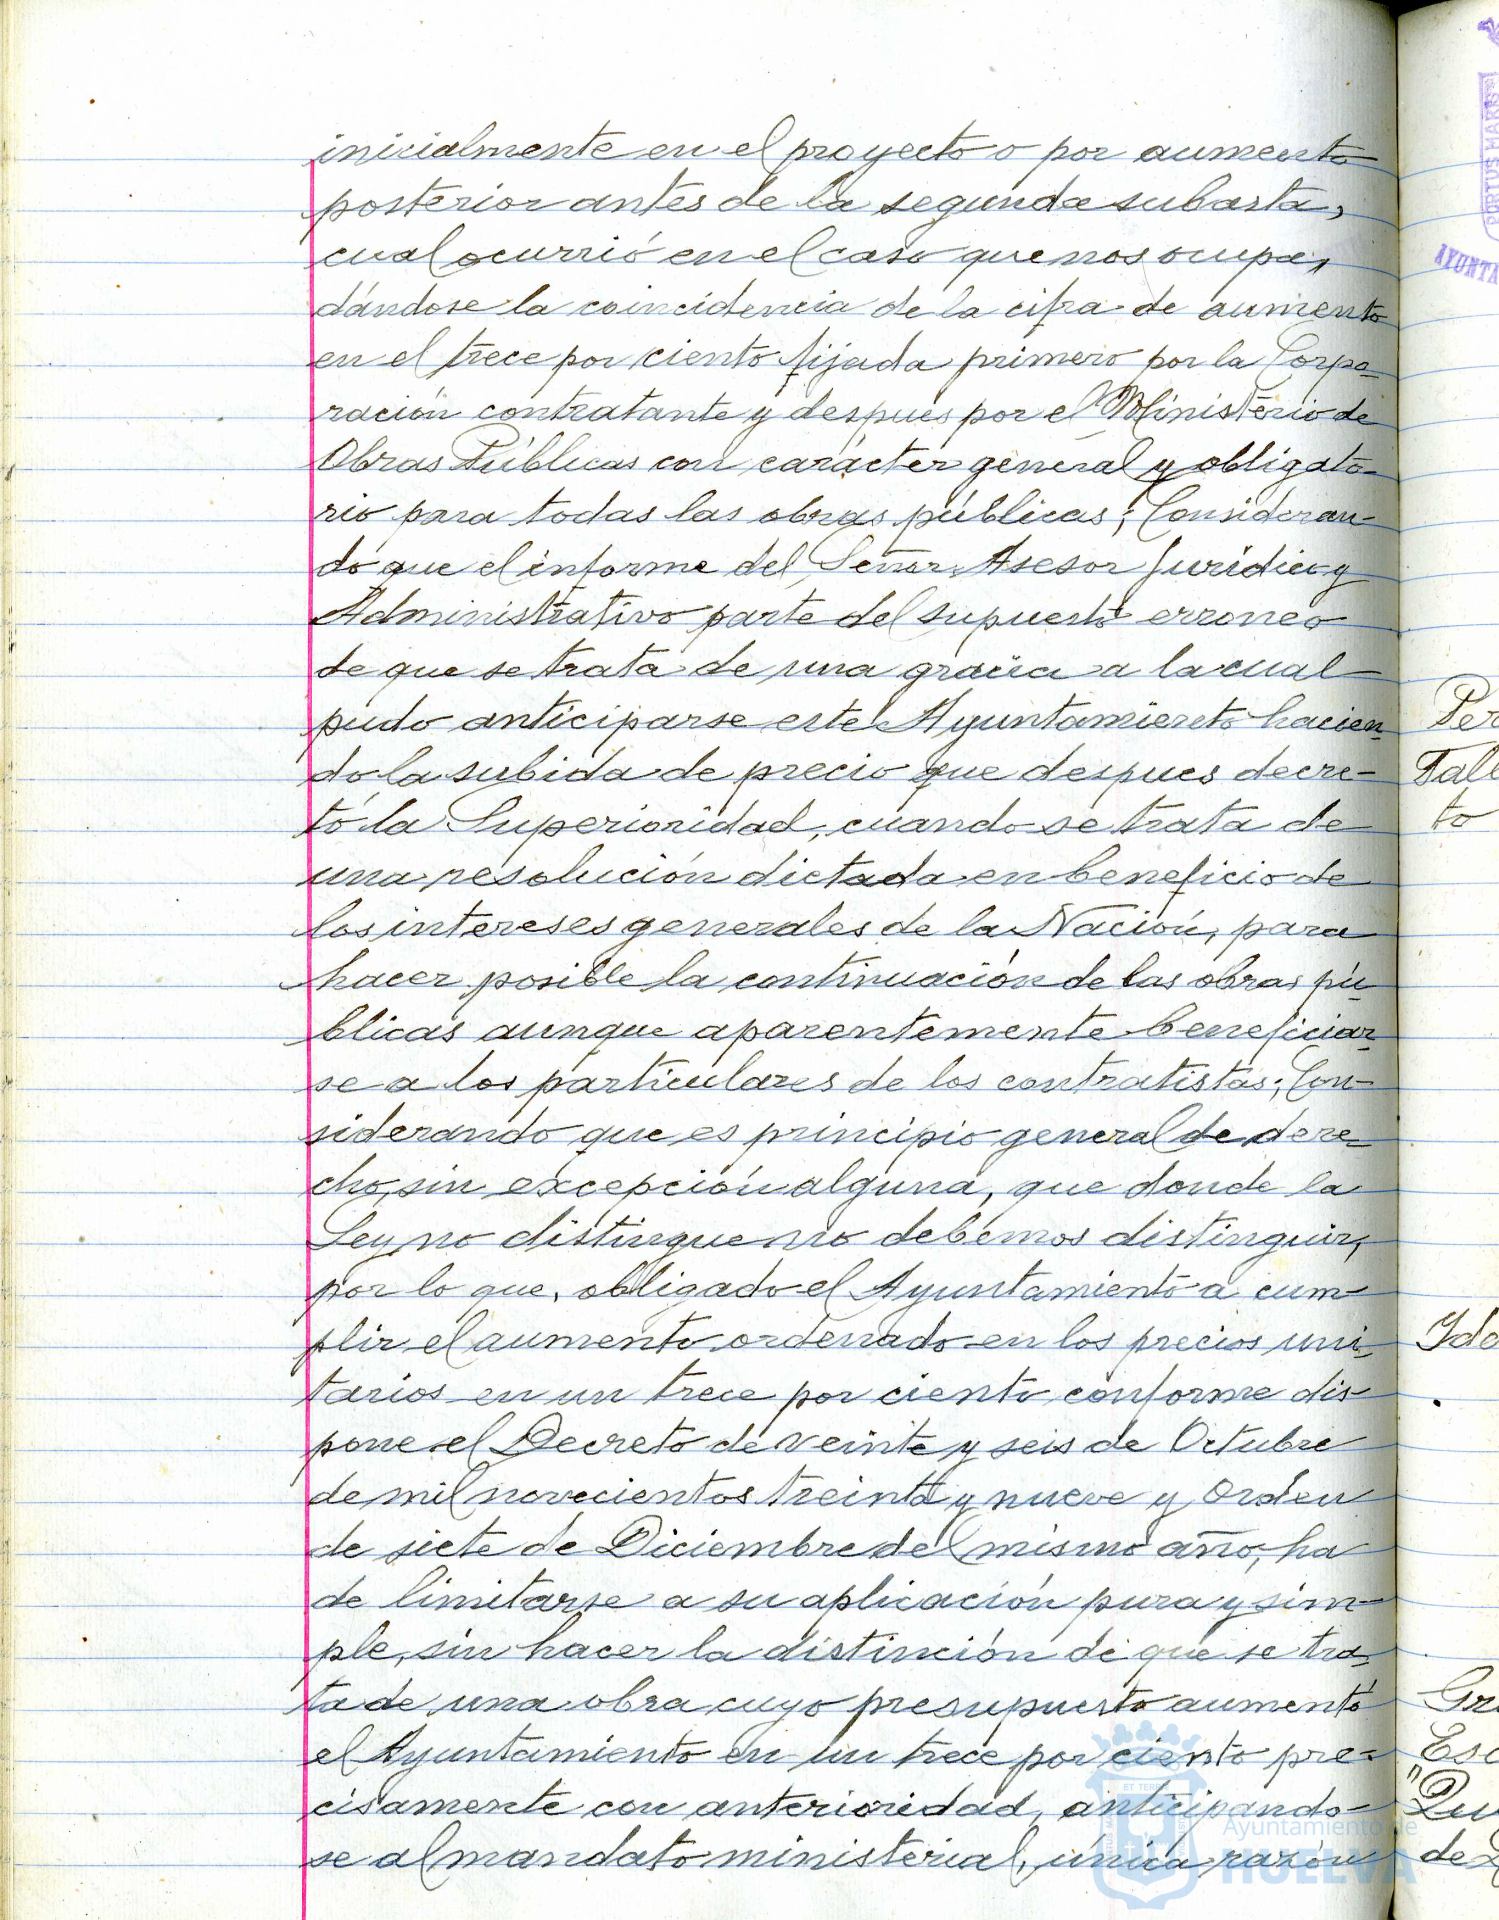 inicialmente en el proyecto o por aumento
posterior antes de la segunda subasta,
cual ocurrió en el caso que nos ocupa,
dándose la coincidencia de la cifra de aumento
en el trece por ciento fijada primero por la Corpo-
ración contratante y despues por el Ministerio de
Obras Públicas con carácter general y obligato-
rio para todas las obras públicas; Consideran-
do que el informe del Señor Asesor Jurídico y
Administrativo parte del supuesto erroneo
de que se trata de una gracia a la cual
pudo anticiparse este Ayuntamiento hacien-
do la subida de precio que despues decre-
tó la Superioridad, cuando se trata de
una resolución dictada en beneficio de
los intereses generales de la Nación, para
hacer posible la continuación de las obras pú-
blicas aunque aparentemente beneficiar-
se a los particulares de los contratistas; Con-
siderando que es principio general de dere-
cho, sin excepción alguna, que donde la
Ley no distingue no debemos distinguir,
por lo que, obligado el Ayuntamiento a cum-
plir el aumento ordenado en los precios uni-
tarios en un trece por ciento conforme dis-
pone el Decreto de veinte y seis de Octubre
de mil novecientos treinta y nueve y Orden
de siete de Diciembre del mismo año, ha
de limitarse a su aplicación pura y sim-
ple, sin hacer la distinción de que se tra-
ta de una obra cuyo presupuesto aumentó
el Ayuntamiento en un trece por ciento pre-
cisamente con anterioridad, anticipando-
se al mandato ministerial, única razón
PORTUS MARIS
AYUNTA
Per
Tale
to
Gr
Esc
de
Ayuntamiento de
HUELVA